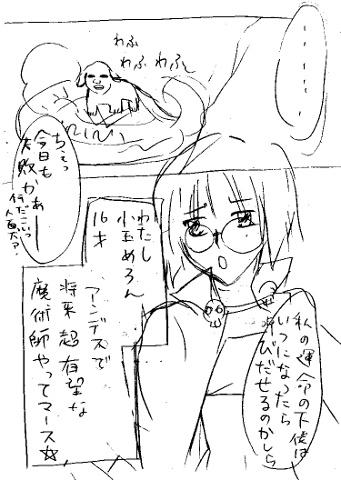 ・・・・・・・・
わふ
わふ
わふ〜
ちぇっ
今日も
失敗かぁー
何だこいつ
人面犬?
わたし
小玉めろん
16才
アンデスで
将来超有望な
魔術師やってマース☆
私の運命の下僕は
いつになったら
呼びだせるのかしら